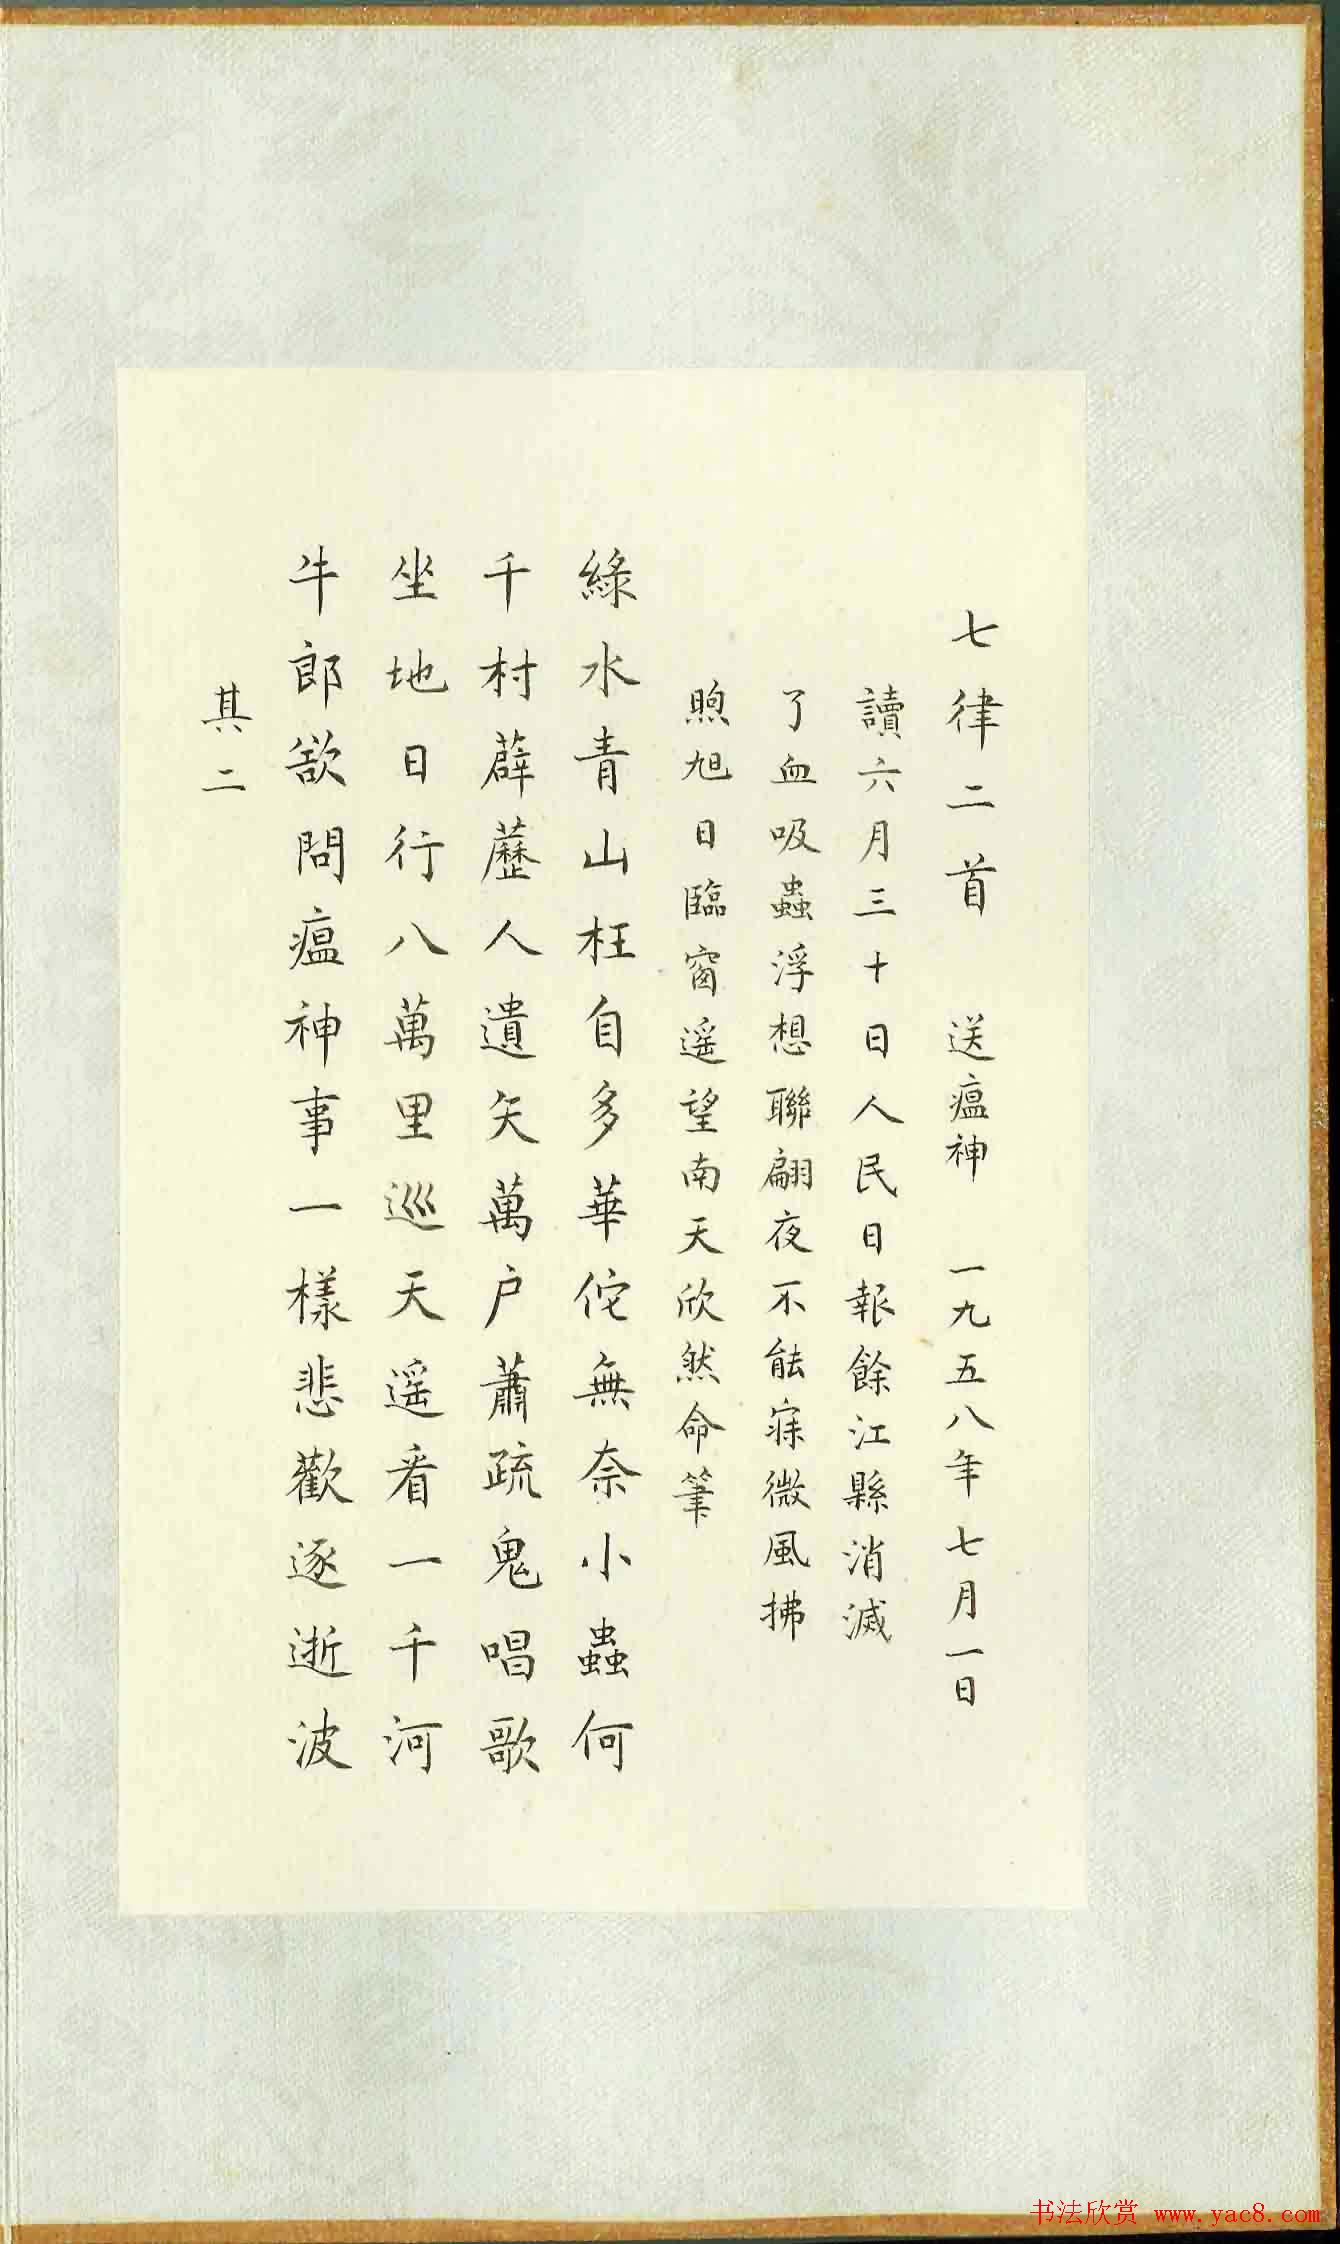 七律二首 送瘟神 一九五八年七月一日
讀六月三十日人民日報餘江縣消滅
了血吸蟲浮想聯翩夜不能寐微風拂
煦旭日臨窗遥望南天欣然命筆
綠水青山枉自多華佗無奈小蟲何
千村薜藶人遺矢萬户蕭疏鬼唱歌
坐地日行八萬里巡天遥看一千河
牛郎欲問瘟神事一樣悲歡逐逝波
其二
书法欣赏 www.yac8.com